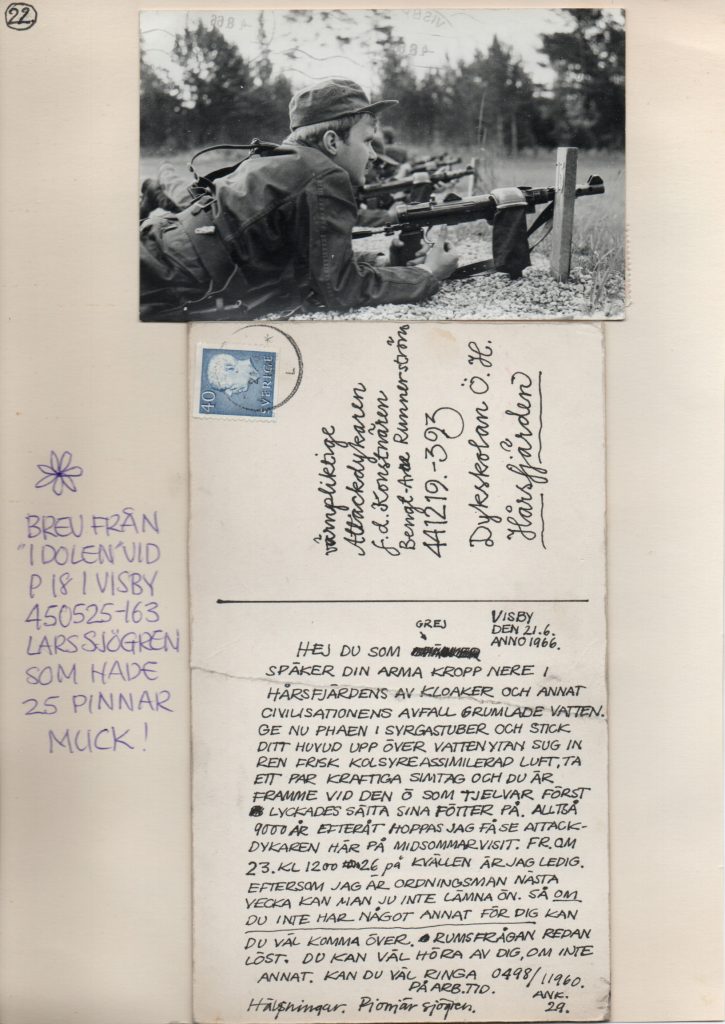 22.
VISBY
40
SVERIGE
värnpliktige
Attackdykaren
f.d. Konstnären
Bengt-Arne Runnerström
441219.-393
Dykskolan Ö.H.
Hårsfjärden
BREV FRÅN
"IDOLEN" VID
P 18 I VISBY
450525-163
LARS SJÖGREN
SOM HADE
25 PINNAR
MUCK!
VISBY
DEN 21.6.
ANNO 1966.
GREJ
HEJ DU SOM
SPÄKER DIN ARMA KROPP NERE I
HÅRSFJÄRDENS AV KLOAKER OCH ANNAT
CIVILISATIONENS AVFALL GRUMLADE VATTEN.
GE NU PHAEN I SYRGASTUBER OCH STICK
DITT HUVUD UPP ÖVER VATTENYTAN SUG IN
REN FRISK KOLSYREASSIMILERAD LUFT, TA
ETT PAR KRAFTIGA SIMTAG OCH DU ÄR
FRAMME VID DEN Ö SOM TJELVAR FÖRST
LYCKADES SÄTTA SINA FÖTTER PÅ. ALLTSÅ
9000 ÅR EFTERÅT HOPPAS JAG FÅ SE ATTACK-
DYKAREN HÄR PÅ MIDSOMMARVISIT. FR.OM
23. KL 1200 26 på KVÄLLEN ÄR JAG LEDIG.
EFTERSOM JAG ÄR ORDNINGSMAN NÄSTA
VECKA KAN MAN JU INTE LÄMNA ÖN. SÅ OM
DU INTE HAR NÅGOT ANNAT FÖR DIG KAN
DU VÄL KOMMA ÖVER. RUMSFRÅGAN REDAN
LÖST. DU KAN VÄL HÖRA AV DIG, OM INTE
ANNAT. KAN DU VÄL RINGA 0498/11960.
PÅ ARB.TID. ANK. 29.
Hälsningar. Pionjär Sjögren.